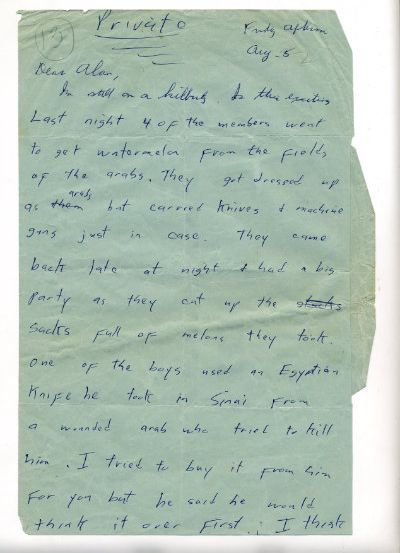 13
Private
Friday afternoon
Aug. 5
Dear Alan,
I'm still on a kibbutz. Is this exciting
Last night 4 of the members went
to get watermelon from the fields
of the arabs. They got dressed up
as them arabs but carried knives & machine
guns just in case. They came
back late at night & had a big
party as they cut up the
sacks full of melons they took.
One of the boys used an Egyptian
Knife he took in Sinai from
a wounded arab who tried to kill
him. I tried to buy it from him
for you but he said he would
think it over first. I think